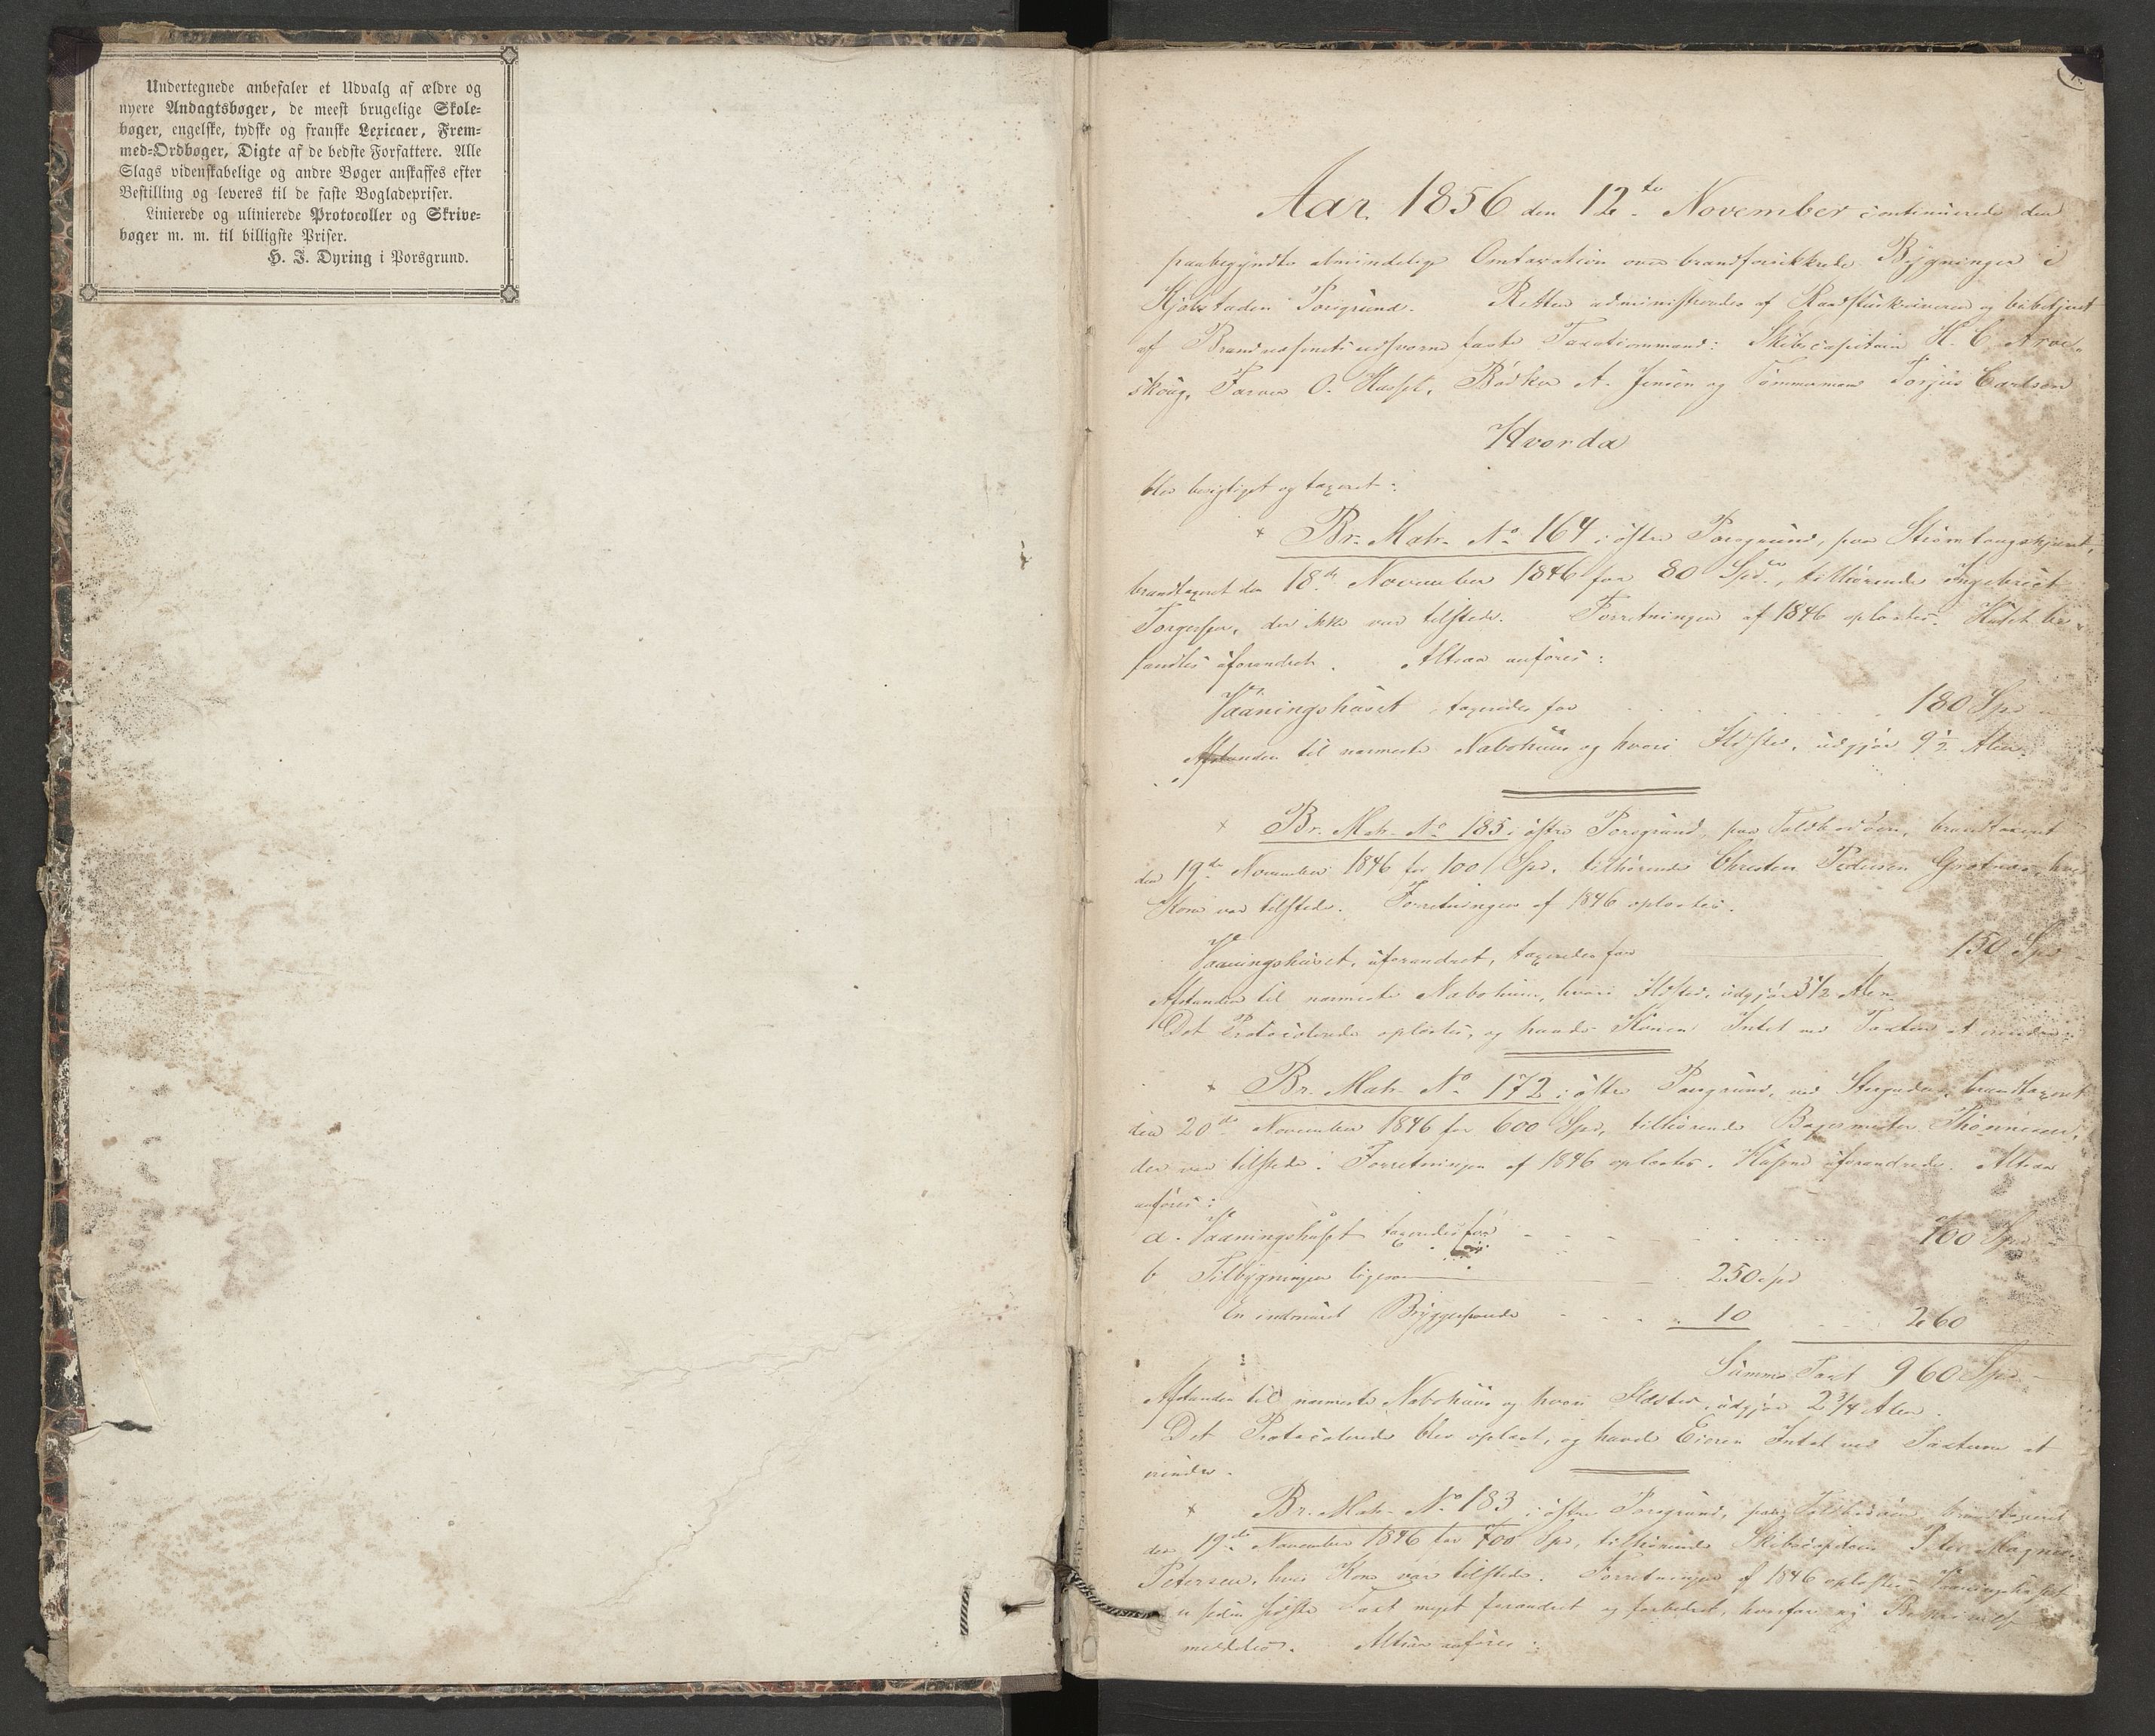 Undertegnede anbefaler et Udvalg af ældre og
nyere Andagtsbøger, de meest brugelige Skole-
bøger, engelske, tydske og franske Lexicaer, Frem-
med-Ordbøger, Digte af de bedste Forfattere. Alle
Slags videnskabelige og andre Bøger anskaffes efter
Bestilling og leveres til de faste Bogladepriser.
Linierede og ulinierede Protocoller og Skrive-
bøger m. m. til billigste Priser.
H. J. Dyring i Porsgrund.
Aar 1856 den 12te November continuerede den
paabegyndte almindelige Omtaxation over brandforsikkrede Bygninger i
Kjøbstaden Porsgrund. Retten administreredes af Raadstueskriveren og bibetjent
af Brandvæsenets edsvorne faste Taxationsmænd: Skibscapitain H. C.
skoug, Farver O. Bødker A. Jensen og Tømmermand Torjus Carlsen
Hvorda
blev besigtiget og taxeret:
Br. Matr. No 164 i østre Porsgrund, paa
brandtaxeret den 18de November 1846 for 80 Spd., tilhørende Ingebrict
Torgersen, der ikke var tilstede. Forretningen af 1846 oplæstes. Huset be-
fandtes uforandret. Altsaa anføres:
Vaaningshuset taxeredes for 180 Spd
Afstanden til nærmeste Nabohuus og hvori Ildsted, udgjør 9½ Alen.
Br. Matr. No 185 i østre Porsgrund, paa Toldbodøen, brandtaxeret
den 19de November 1846 for 100 Spd. tilhørende Christen Pedersen hvis
Kone var tilstede. Forretningen af 1846 oplæstes.
Vaaningshuset, uforandret, taxeredes for 150 Spd
Afstanden til nærmeste Nabohuus, hvori Ildsted, udgjør 3½ Alen.
Det Protocolerede oplæstes, og havde Konen Intet ved Taxten at erindre.
Br. Matr. No 172 i østre Porsgrund, ved brandtaxeret
den 20de November 1846 for 600 Spd, tilhørende Bagermester
der var tilstede. Forretningen af 1846 oplæstes. Husene uforandrede. Altsaa
anføres:
a. Vaaningshuset taxeredes for 700 Spd
b Tilbygningen ligesaa 250 Spd
En indmuret Bryggepande 10 260
Summa Taxt 960 Spd
Afstanden til nærmeste Nabohuus og hvori Ildsted, udgjør 2¾ Alen.
Det Protocolerede blev oplæst, og havde Eieren Intet ved Taxterne at
erindre.
Br. Matr. No 183 i østre Porsgrund, paa Toldbodøen brandtaxeret
den 19de November 1846 for 700 Spd, tilhørende Skibscapitain Peter Magnus
Petersen, hvis Kone var tilstede. Forretningen af 1846 oplæstes. Vaaningshuset
er siden sidste Taxt meget forandret og forbedret, hvorfor ny Beskrivelse
meddeles. Altsaa anføres: